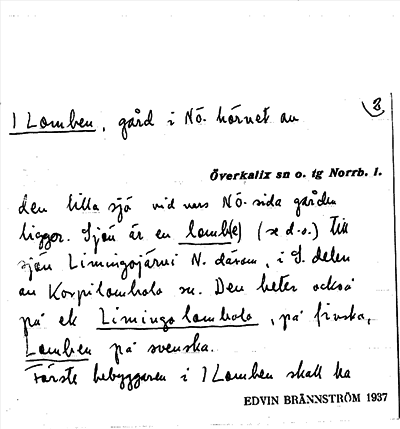 I Lomben, gård i NÖ. hörnet av
3
Överkalix sn o. tg Norrb. l.
den lilla sjö vid vars NÖ. sida gården
ligger. Sjön är en lomb(e) (se d.o.) till
sjön Limingojärvi N. därom, i S. delen
av Korpilombolo sn. Den heter också
på ek Limingolombolo, på finska,
Lomben på svenska.
Förste bebyggaren i I Lomben skall ha
EDVIN BRÄNNSTRÖM 1937